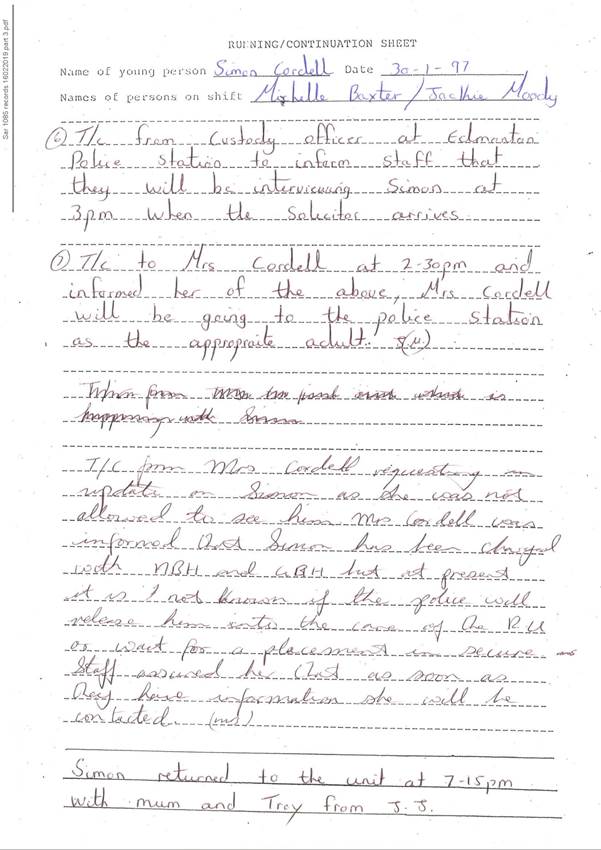 Sar 1085 records 16022019 part 3.pdf
RUNNING/CONTINUATION SHEET
Name of young person Simon Cordell Date 30-1-97
Names of persons on shift Michelle Baxter / Jackie Moody
⑥ T/c from Custody officer at Edmonton
Police Station to inform staff that
they will be interviewing Simon at
3pm when the Solicitor arrives
⑦ T/c to Mrs Cordell at 2-30pm and
informed her of the above, Mrs Cordell
will be going to the police station
as the appropraite adult.
what is
happening with Simon
T/C from Mrs Cordell requesting an
update on Simon as she was not
allowed to see him Mrs Cordell was
informed that Simon has been charged
with ABH and GBH but at present
it is not known if the police will
release him into the care of the R.U
or wait for a placement in secure
Staff assured her that as soon as
they have information she will be
contacted. (ms)
Simon returned to the unit at 7-15pm
with mum and Troy from J.J.